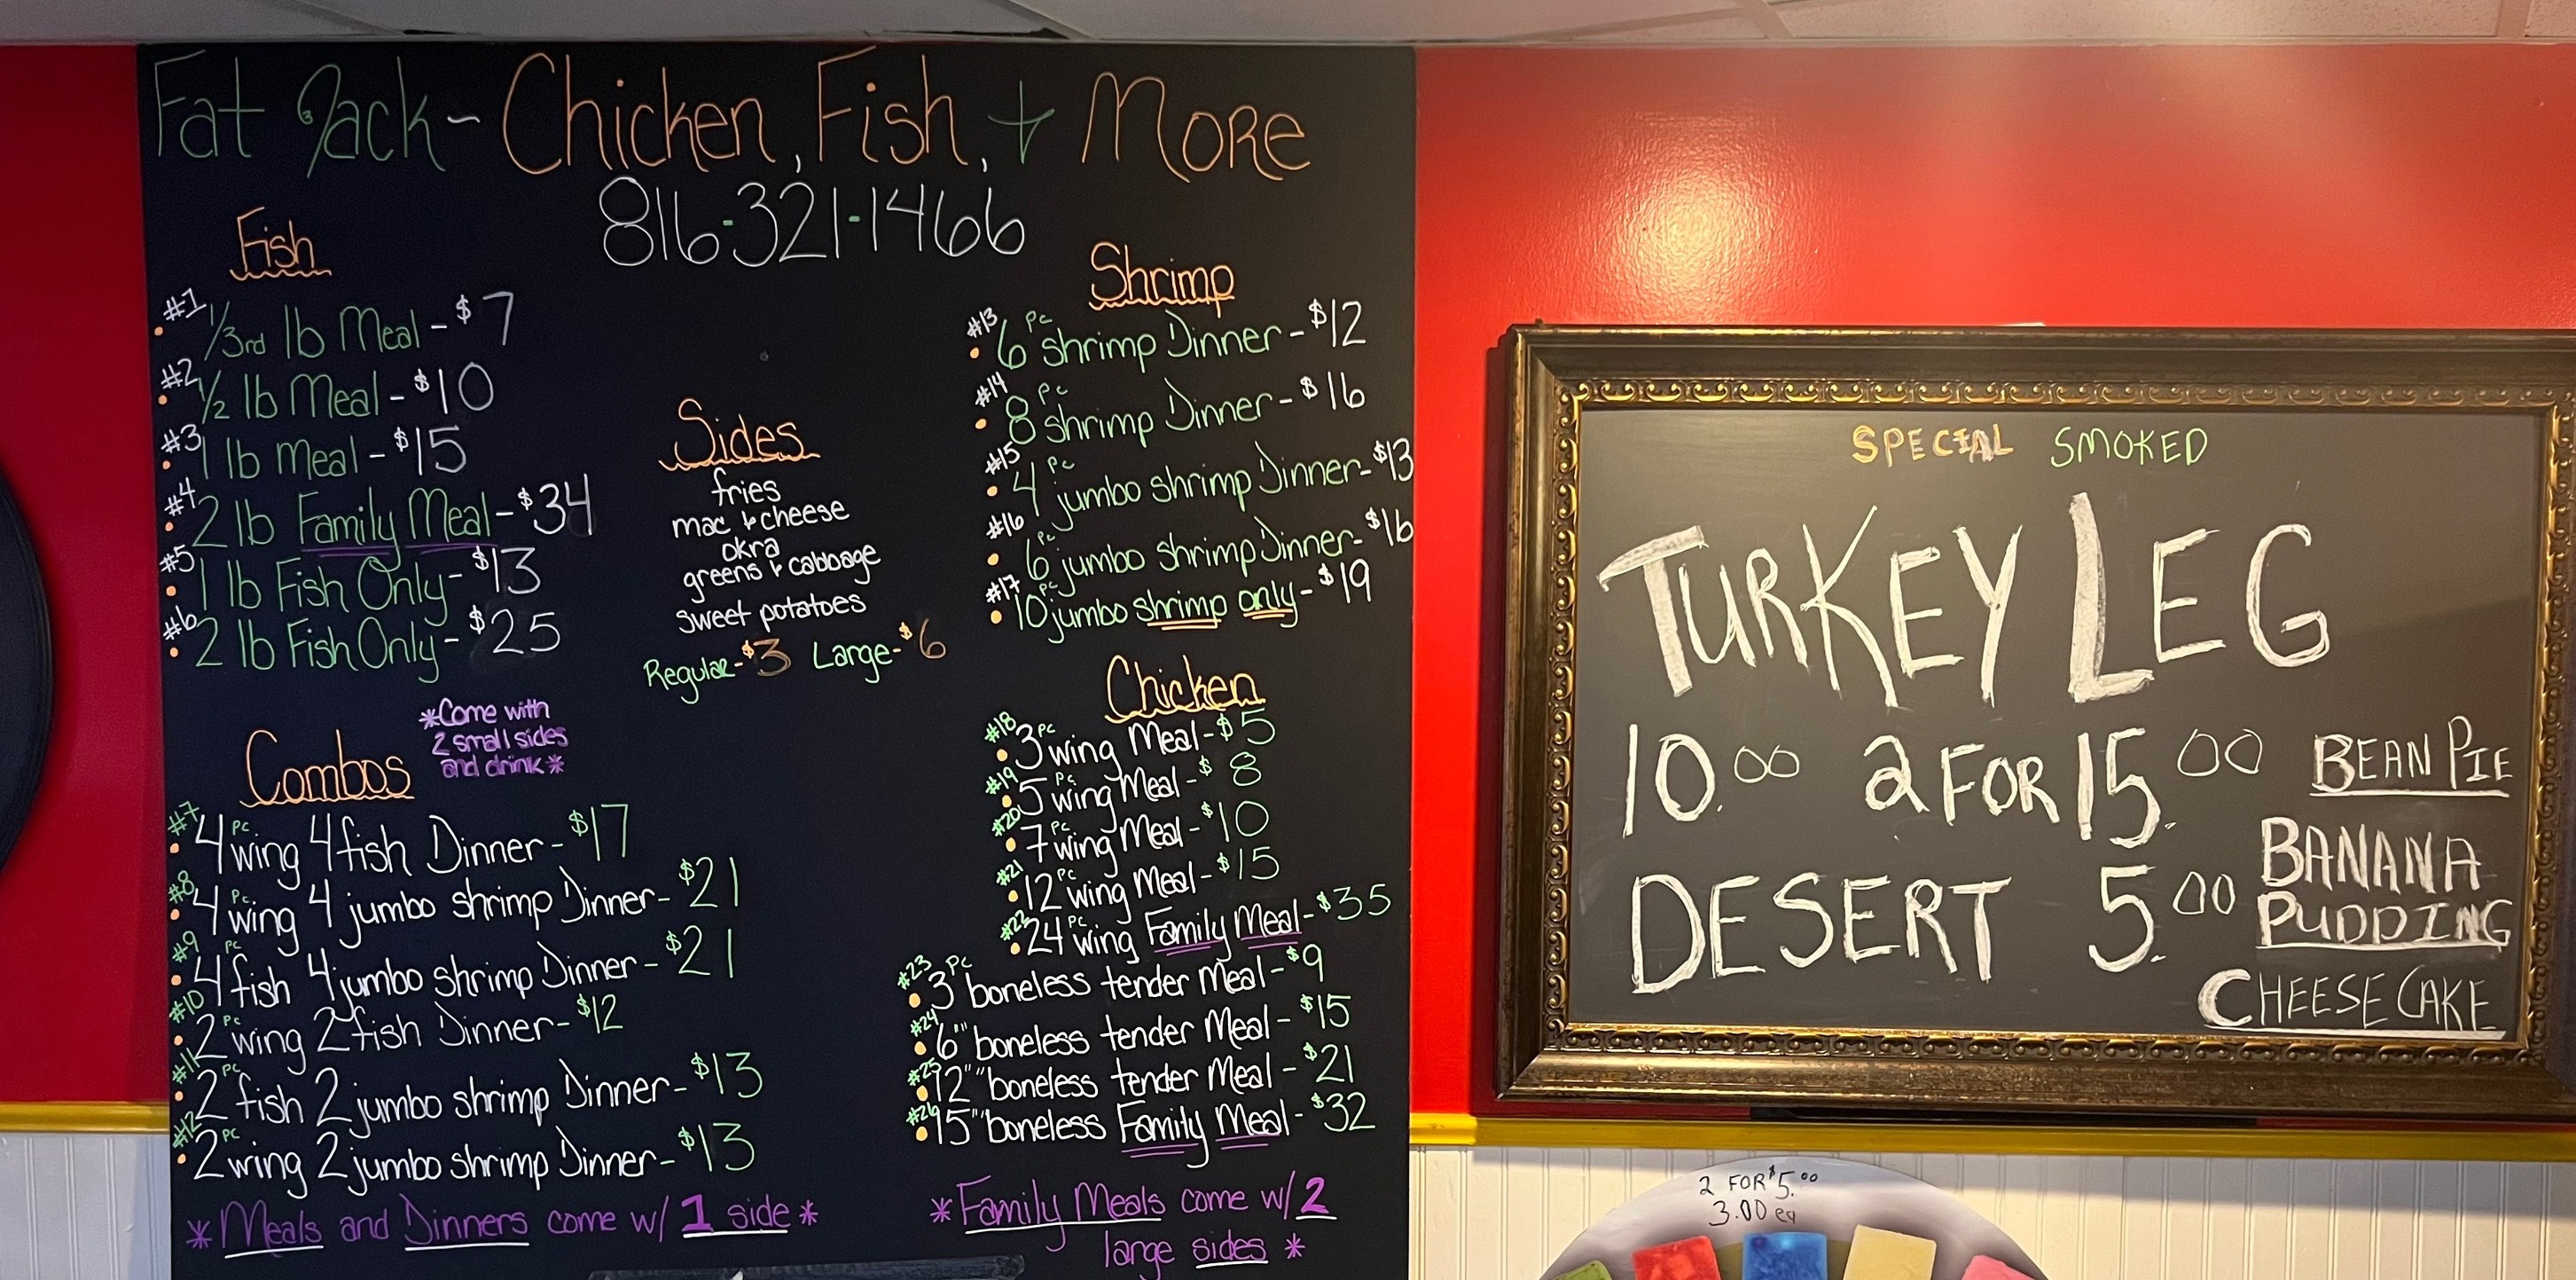 Fat Jack - Chicken, Fish, + More
816-321-1466
Fish
#1 1/3rd lb Meal - $7
#2 1/2 lb Meal - $10
#3 1 lb Meal - $15
#4 2 lb Family Meal - $34
#5 1 lb Fish Only - $13
#6 2 lb Fish Only - $25
Combos
*Come with
2 small sides
and drink*
#7 4 pc wing 4 fish Dinner - $17
#8 4 pc. wing 4 jumbo shrimp Dinner - $21
#9 4 pc fish 4 jumbo shrimp Dinner - $21
#10 2 pc wing 2 fish Dinner - $12
#11 2 pc fish 2 jumbo shrimp Dinner - $13
#12 2 pc wing 2 jumbo shrimp Dinner - $13
*Meals and Dinners come w/ 1 side*
Sides
fries
mac & cheese
okra
greens & cabbage
sweet potatoes
Regular - $3 Large - $6
Shrimp
#13 6 pc shrimp Dinner - $12
#14 8 pc shrimp Dinner - $16
#15 4 pc jumbo shrimp Dinner - $13
#16 6 pc jumbo shrimp Dinner - $16
#17 10 pc jumbo shrimp only - $19
Chicken
#18 3 pc wing Meal - $5
#19 5 pc wing Meal - $8
#20 7 pc wing Meal - $10
#21 12 pc wing Meal - $15
#22 24 pc wing Family Meal - $35
#23 3 pc boneless tender Meal - $9
#24 6 "" boneless tender Meal - $15
#25 12 "" boneless tender Meal - $21
#26 15 "" boneless Family Meal - $32
*Family Meals come w/ 2
large sides *
SPECIAL SMOKED
TURKEY LEG
10.00 2 FOR 15.00
DESERT 5.00
BEAN PIE
BANANA
PUDDING
CHEESE CAKE
2 FOR $5.00
3.00 ea